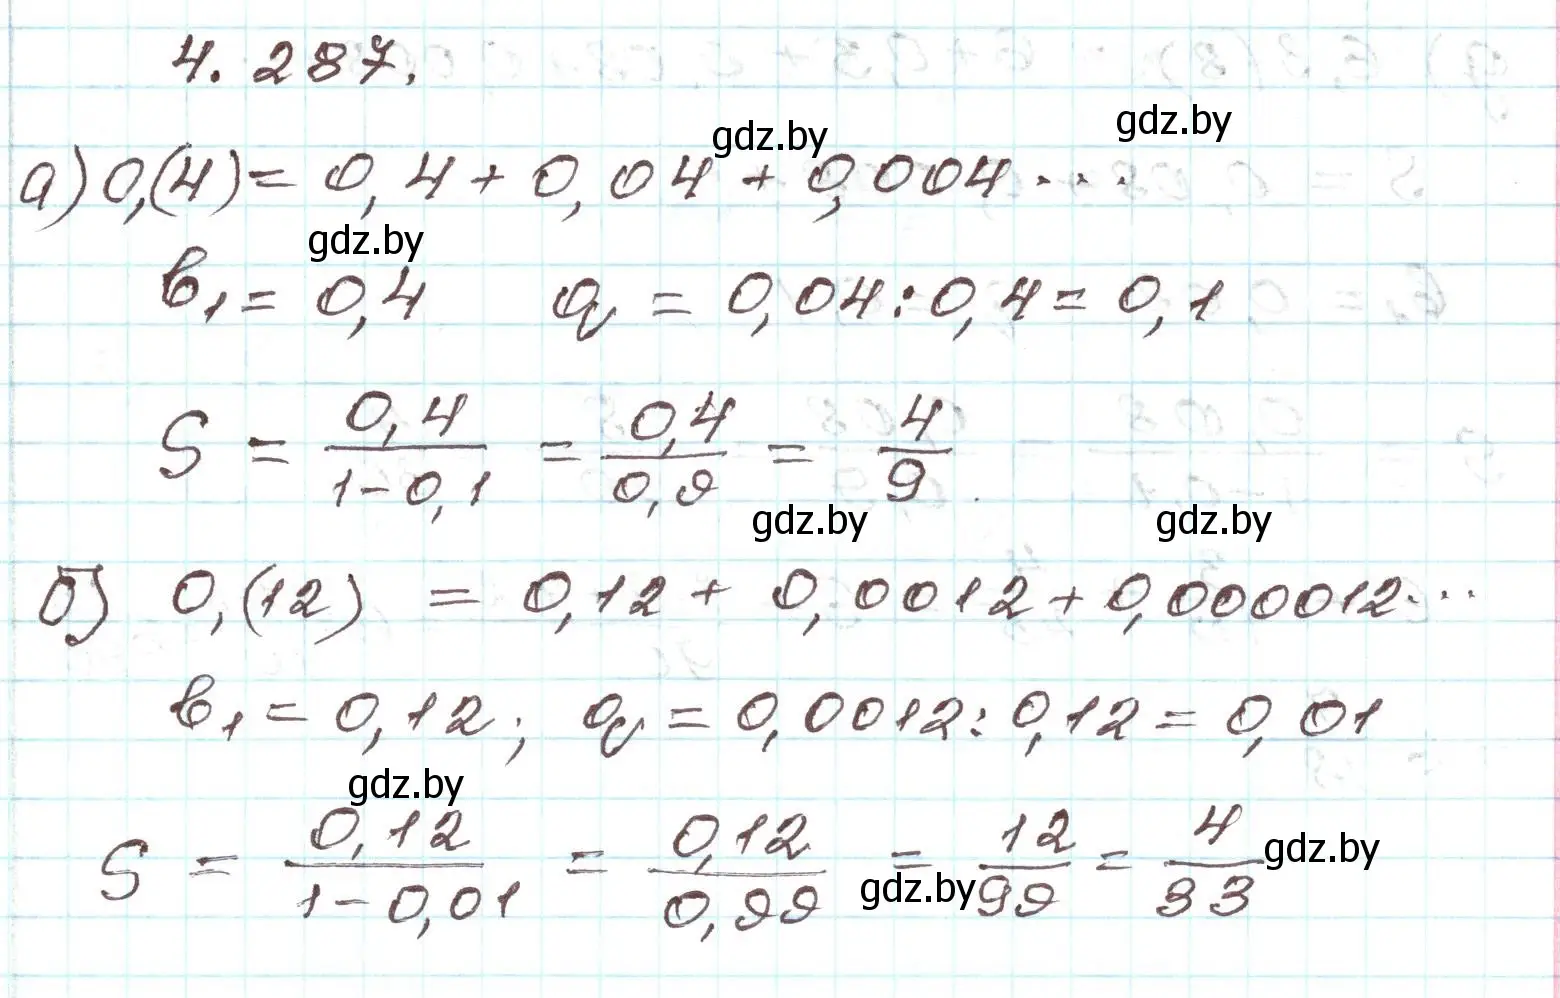 4.287.
gdz.by gdz.by
а) 0,(4) = 0,4 + 0,04 + 0,004 ...
gdz.by
b₁ = 0,4 q = 0,04 : 0,4 = 0,1
S = 0,4/(1-0,1) = 0,4/0,9 = 4/9.
gdz.by gdz.by
б) 0,(12) = 0,12 + 0,0012 + 0,000012...
b₁ = 0,12; q = 0,0012 : 0,12 = 0,01
gdz.by
S = 0,12/(1-0,01) = 0,12/0,99 = 12/99 = 4/33
gdz.by gdz.by